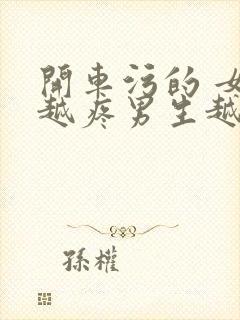 開車污的 女
越疼男生越
孫權